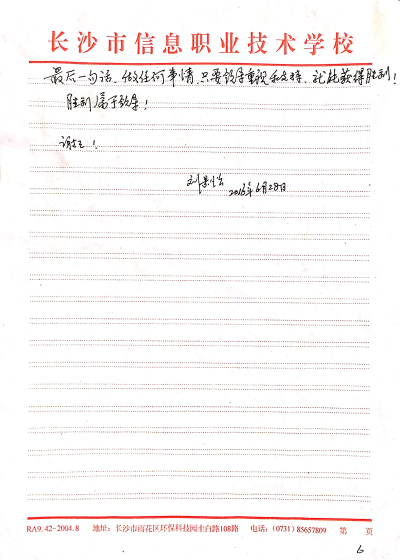 长沙市信息职业技术学校
最后一句话、做任何事情,只要领导重视和支持、就能获得胜利!
胜利属于领导!
谢谢!
2016年6月28日
RA9.42-2004.8 地址:长沙市雨花区环保科技园圭白路108路 电话:(0731)85657809 第 页
6